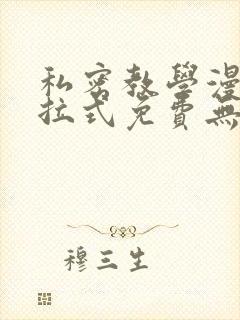 私密教學漫
拉式免費無
穆三生